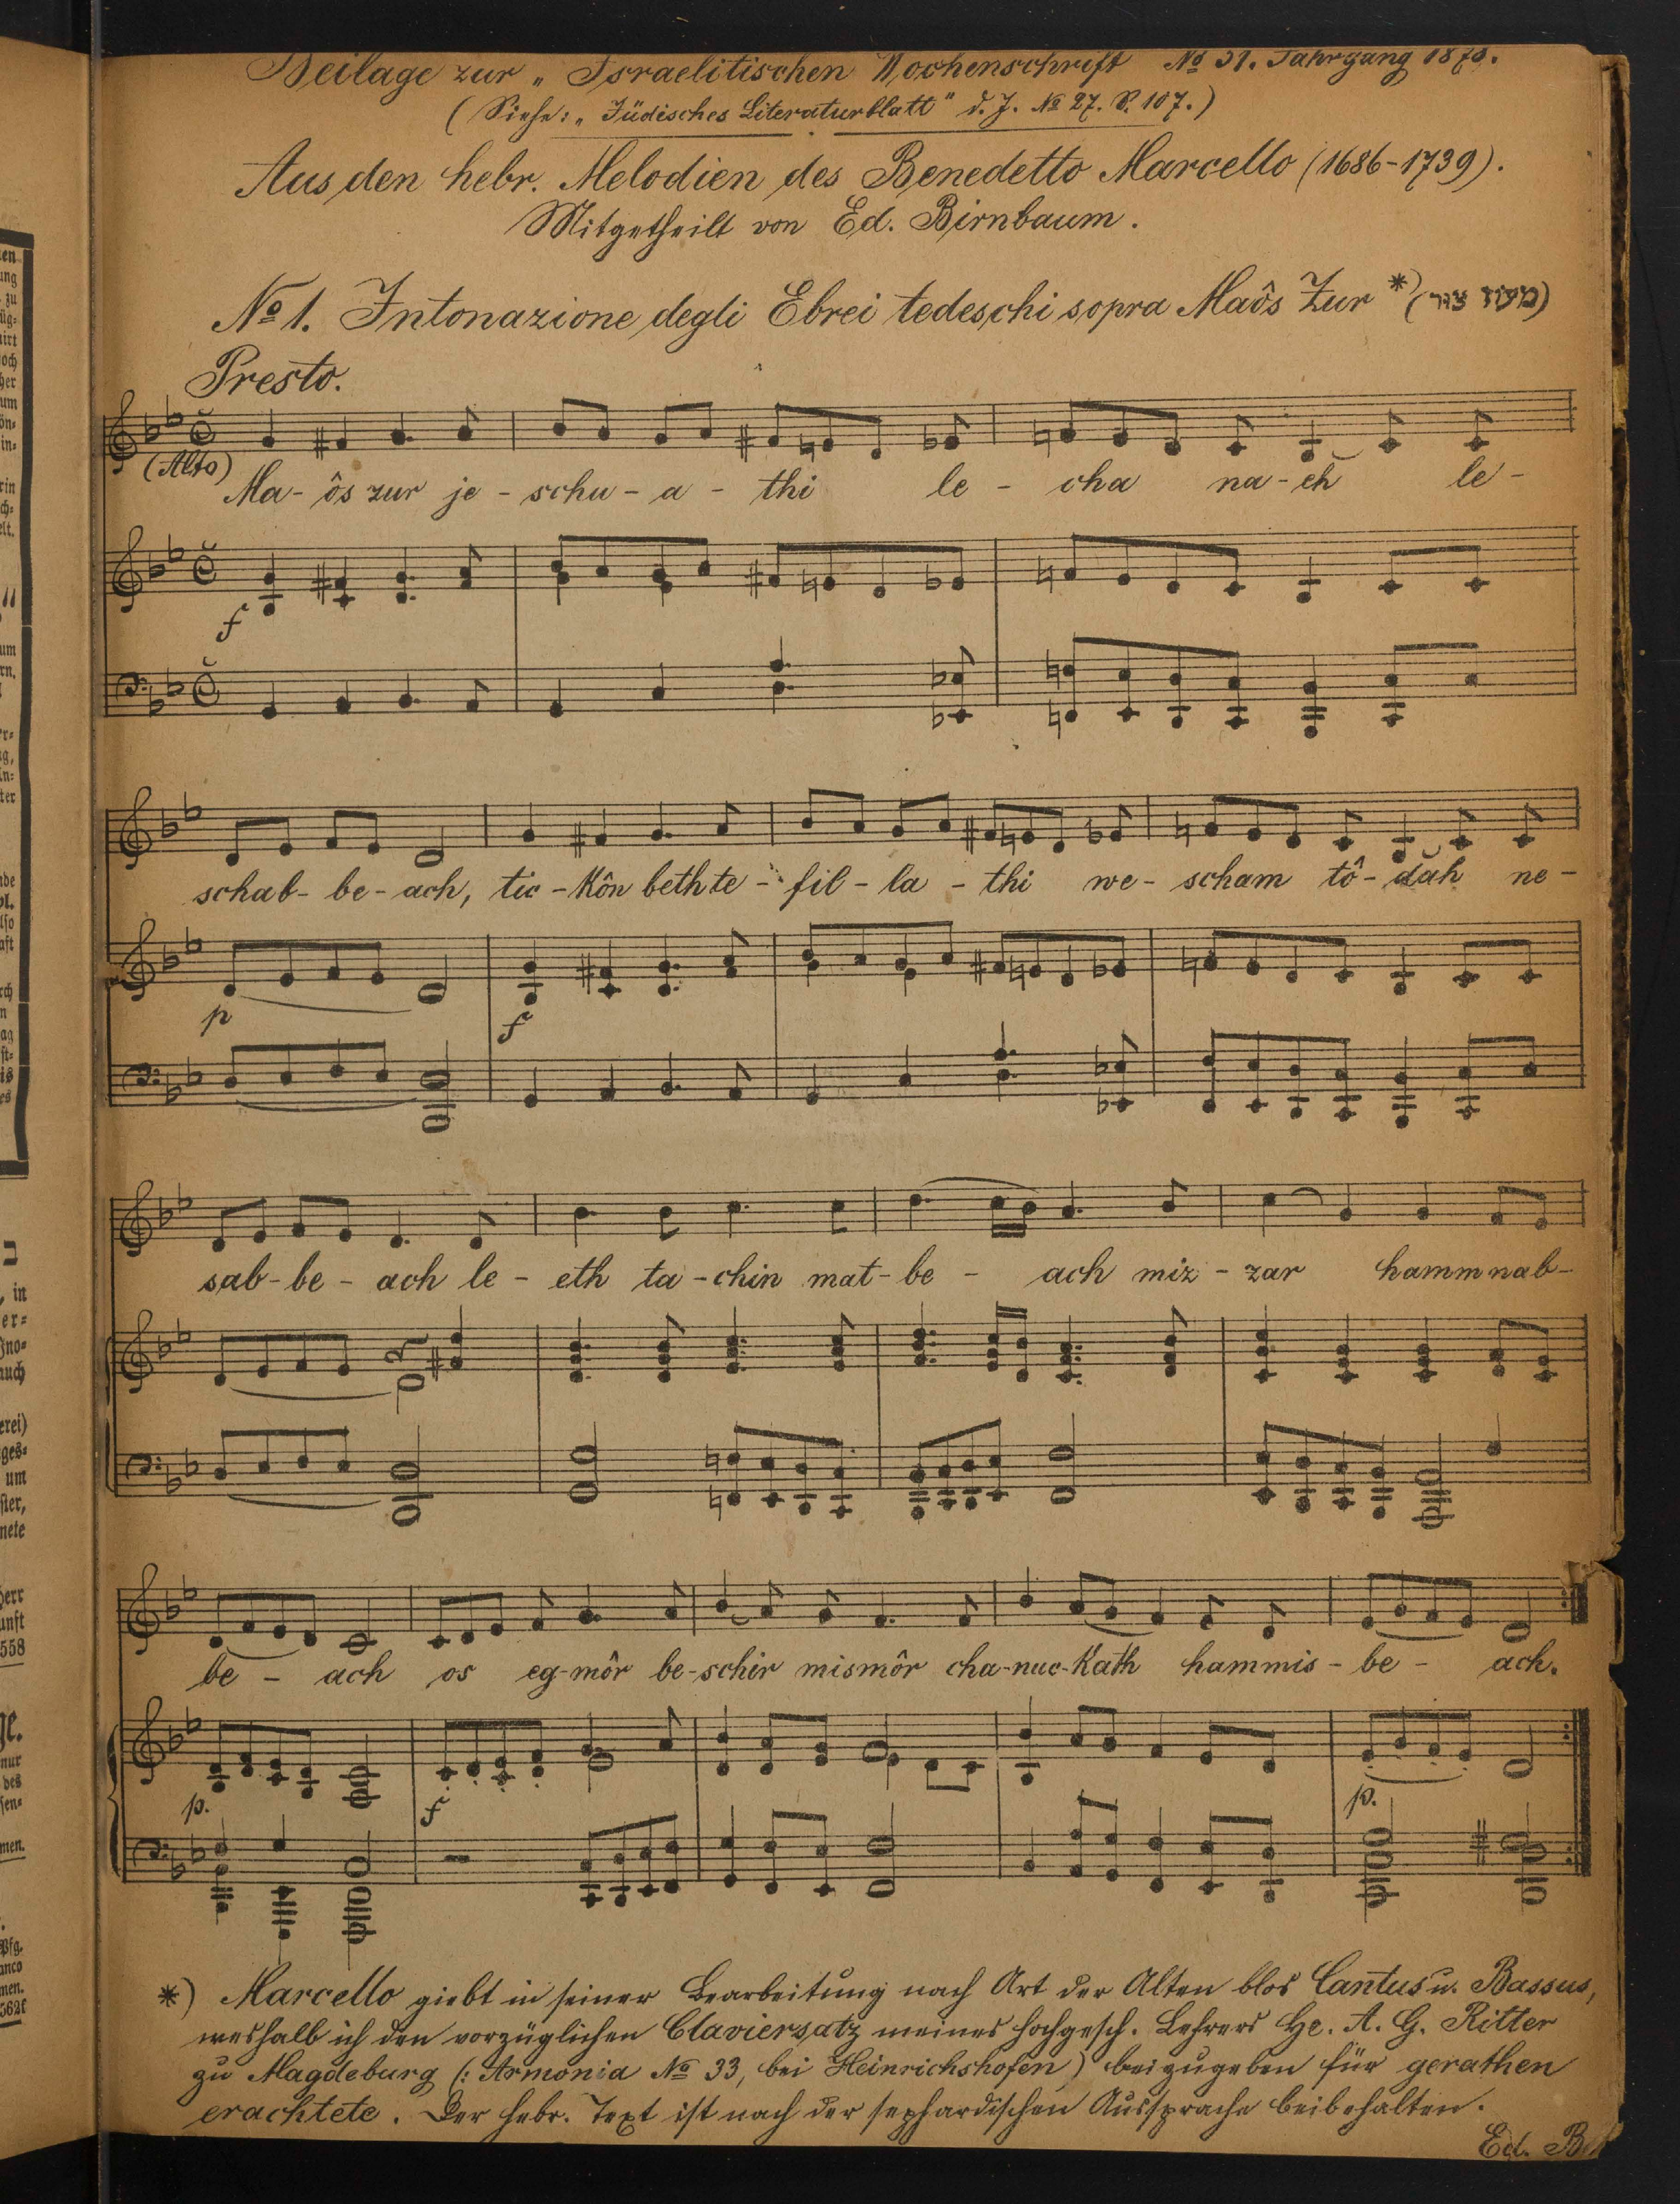 Beilage zur „Israelitischen Wochenschrift No 31. Jahrgang 1873.
(Siehe: „Jüdisches Literaturblatt" d. J. No 27. S. 107.)
Aus den hebr. Melodien des Benedetto Marcello (1686-1739).
Mitgetheilt von Ed. Birnbaum.
No 1. Intonazione degli Ebrei tedeschi sopra Maôs Zur *) (מעוז צור)
Presto.
(Alto)
Ma- ôs zur je - schu - a - thi le - cha na - eh le -
f
schab - be - ach, tic - kôn beth te - fil - la - thi we - scham tô - dah ne -
p f
sab - be - ach le - eth ta - chin mat - be - ach miz - zar hamm nab -
be - ach os eg - môr be - schir mismôr cha - nuc - kath hammis - be - ach.
p. f p.
*) Marcello giebt in seiner Bearbeitung nach Art der Alten blos Cantus u. Bassus,
weshalb ich den vorzüglichen Claviersatz meines hochgesch. Lehrers Hr. A. G. Ritter
zu Magdeburg (: Armonia No 33, bei Heinrichshofen) beizugeben für gerathen
erachtete. Der hebr. Text ist nach der sephardischen Aussprache beibehalten.
Ed. B